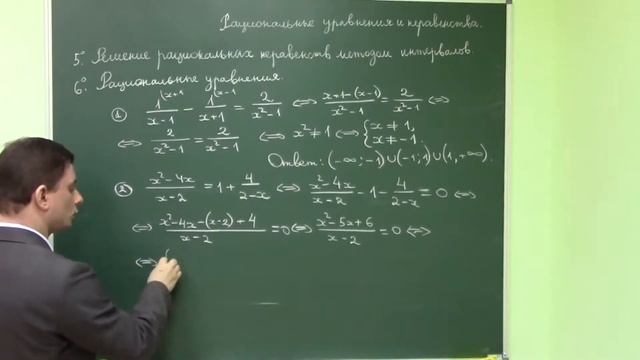 Рациональные уравнения и неравенства.
5° Решение рациональных неравенств методом интервалов.
6° Рациональные уравнения.
① 1^(x+1/(x-1) - 1^(x-1/(x+1) = 2/(x²-1) ⇔ (x+1-(x-1))/(x²-1) = 2/(x²-1) ⇔
⇔ 2/(x²-1) = 2/(x²-1) ⇔ x²≠1 ⇔ { x≠1, x≠-1.
Ответ: (-∞;-1)∪(-1;1)∪(1,+∞).
② (x²-4x)/(x-2) = 1 + 4/(2-x) ⇔ (x²-4x)/(x-2) - 1 - 4/(2-x) = 0 ⇔
⇔ (x²-4x-(x-2)+4)/(x-2) = 0 ⇔ (x²-5x+6)/(x-2) = 0 ⇔
⇔ {